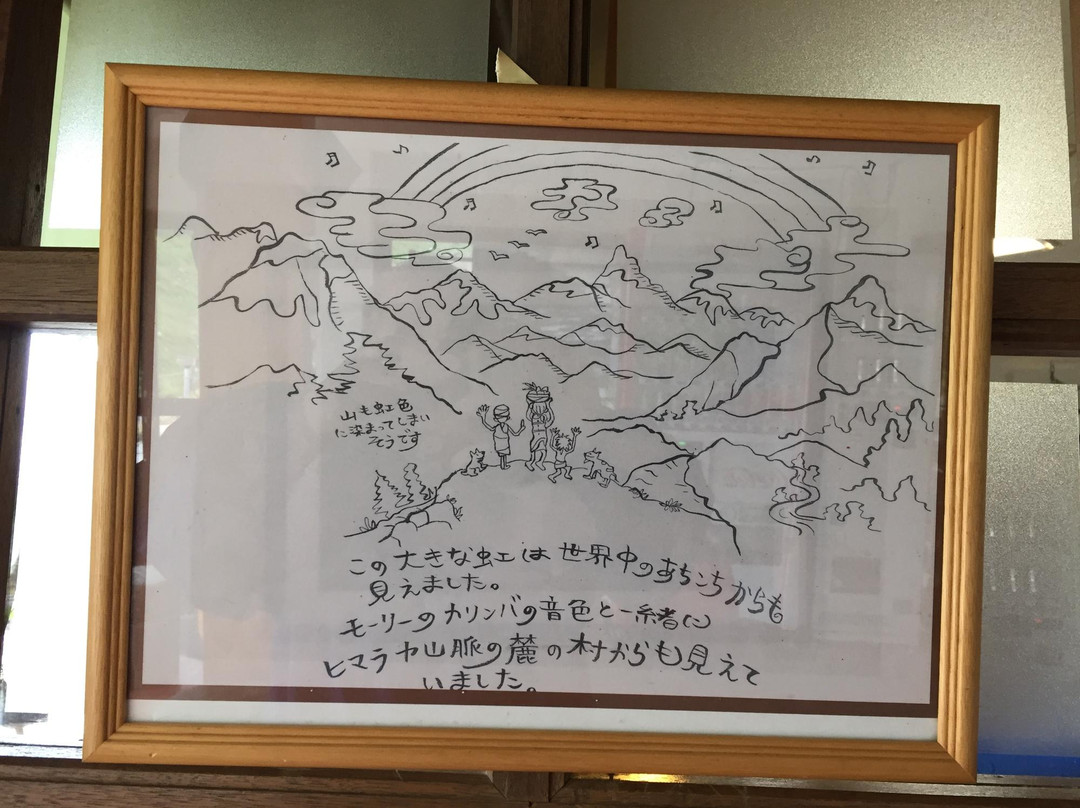 山も虹色
に染まってしまい
そうです
この大きな虹は世界中のあちこちからも
見えました。
モーリーのカリンバの音色と一緒に
ヒマラヤ山脈の麓の村からも見えて
いました。